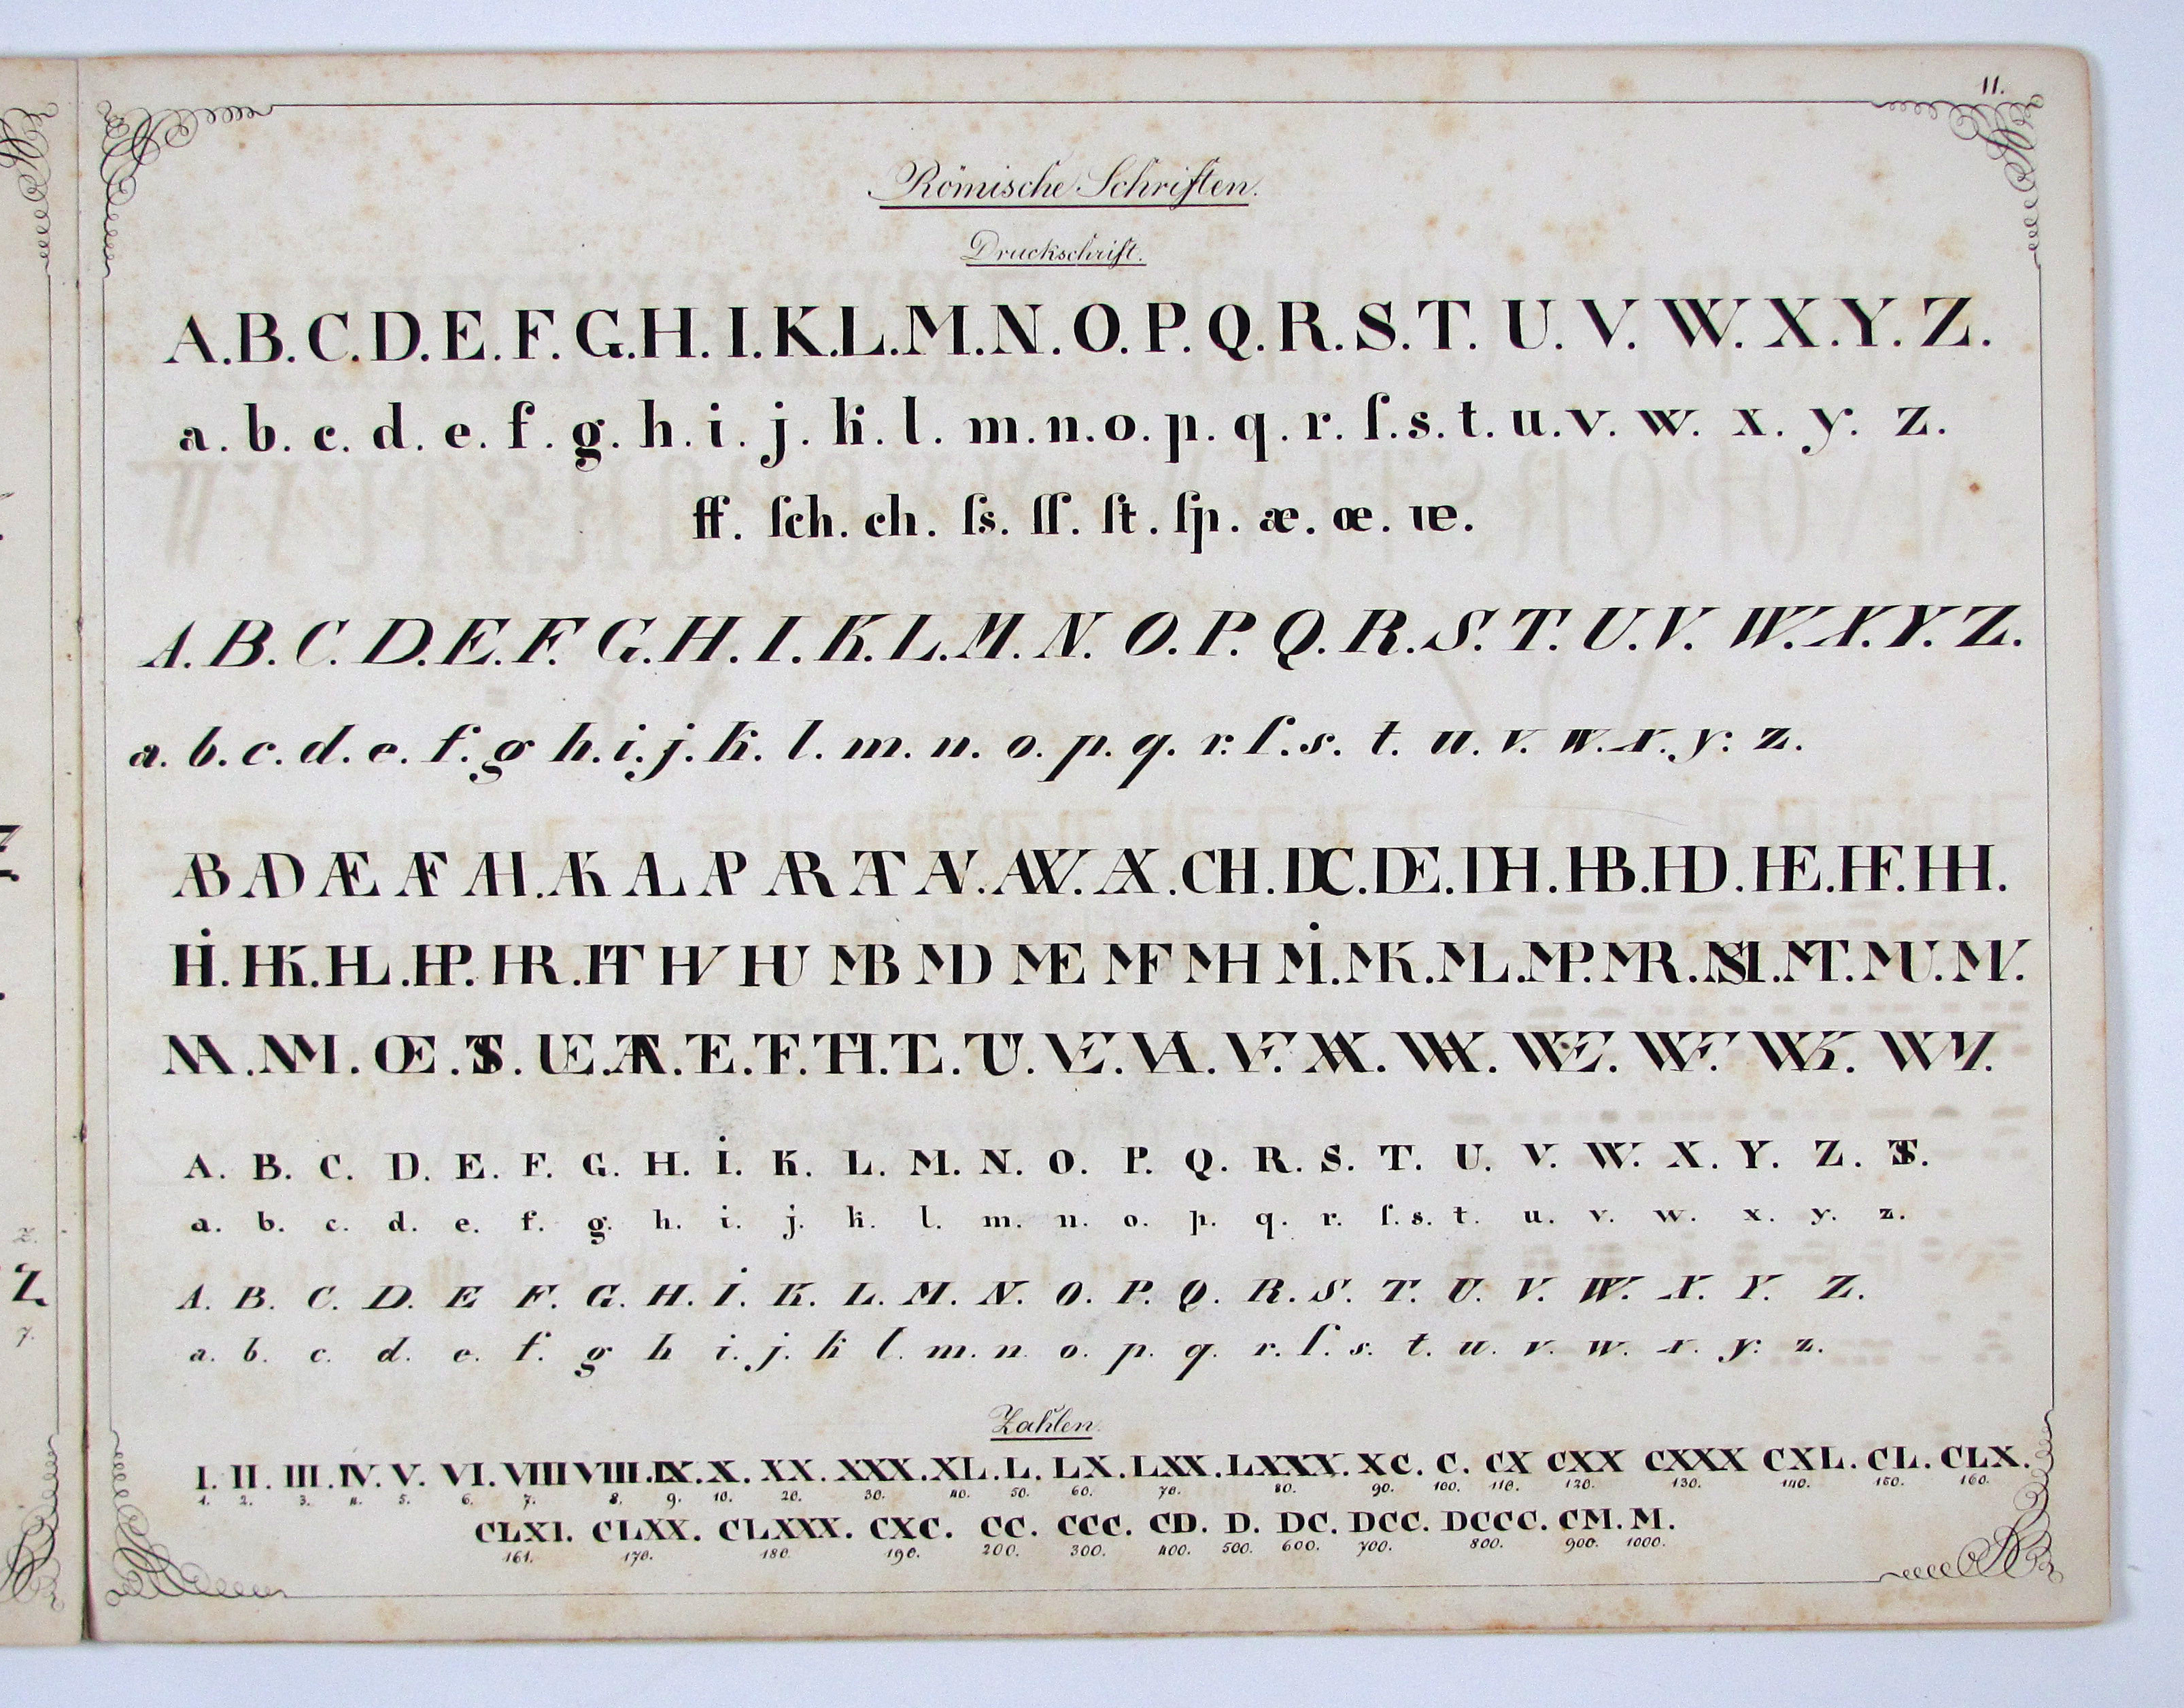 11.
Römische Schriften.
Druckschrift.
A.B.C.D.E.F.G.H.I.K.L.M.N.O.P.Q.R.S.T.U.V.W.X.Y.Z.
a.b.c.d.e.f.g.h.i.j.k.l.m.n.o.p.q.r.ſ.s.t.u.v.w.x.y.z.
ff. ſch. ch. ſs. ſſ. ſt. ſp. æ. œ. ue.
A.B.C.D.E.F.G.H.I.K.L.M.N.O.P.Q.R.S.T.U.V.W.X.Y.Z.
a.b.c.d.e.f.g h.i.j.k.l.m.n.o.p.q.r.ſ.s.t.u.v.w.x.y.z.
AB AD Æ AF AH.AK AL AP AR AT AV.AW.AX.CH.DC.DE.DH.HB.HD.HE.HF.HH.
Hİ.HK.HL.HP.HR.HT HV HU MB MD ME MF MH Mİ.MK.ML.MP.MR.MSI.MT.MU.MV.
NA.NM.Œ.TS.UE.TR.TE.TF.TH.TL.TU.VE.VA.VF.XA.WA.WE.WF.WK.WV.
A. B. C. D. E. F. G. H. İ. K. L. M. N. O. P. Q. R. S. T. U. V. W. X. Y. Z. TS.
a. b. c. d. e. f. g. h. i. j. k. l. m. n. o. p. q. r. ſ. s. t. u. v. w. x. y. z.
A. B. C. D. E F. G. H. İ. K. L. M. N. O. P. Q. R. S. T. U. V. W. X. Y. Z.
a. b. c. d. e. f. g h i. j. k l. m. n o. p. q. r. ſ. s. t. u. v. w. x. y. z.
Zahlen.
I. II. III. IV. V. VI. VIII VIII. IX. X. XX. XXX. XL. L. LX. LXX. LXXX. XC. C. CX CXX CXXX CXL. CL. CLX.
1. 2. 3. 4. 5. 6. 7. 8. 9. 10. 20. 30. 40. 50. 60. 70. 80. 90. 100. 110. 120. 130. 140. 150. 160.
CLXI. CLXX. CLXXX. CXC. CC. CCC. CD. D. DC. DCC. DCCC. CM. M.
161. 170. 180. 190. 200. 300. 400. 500. 600. 700. 800. 900. 1000.